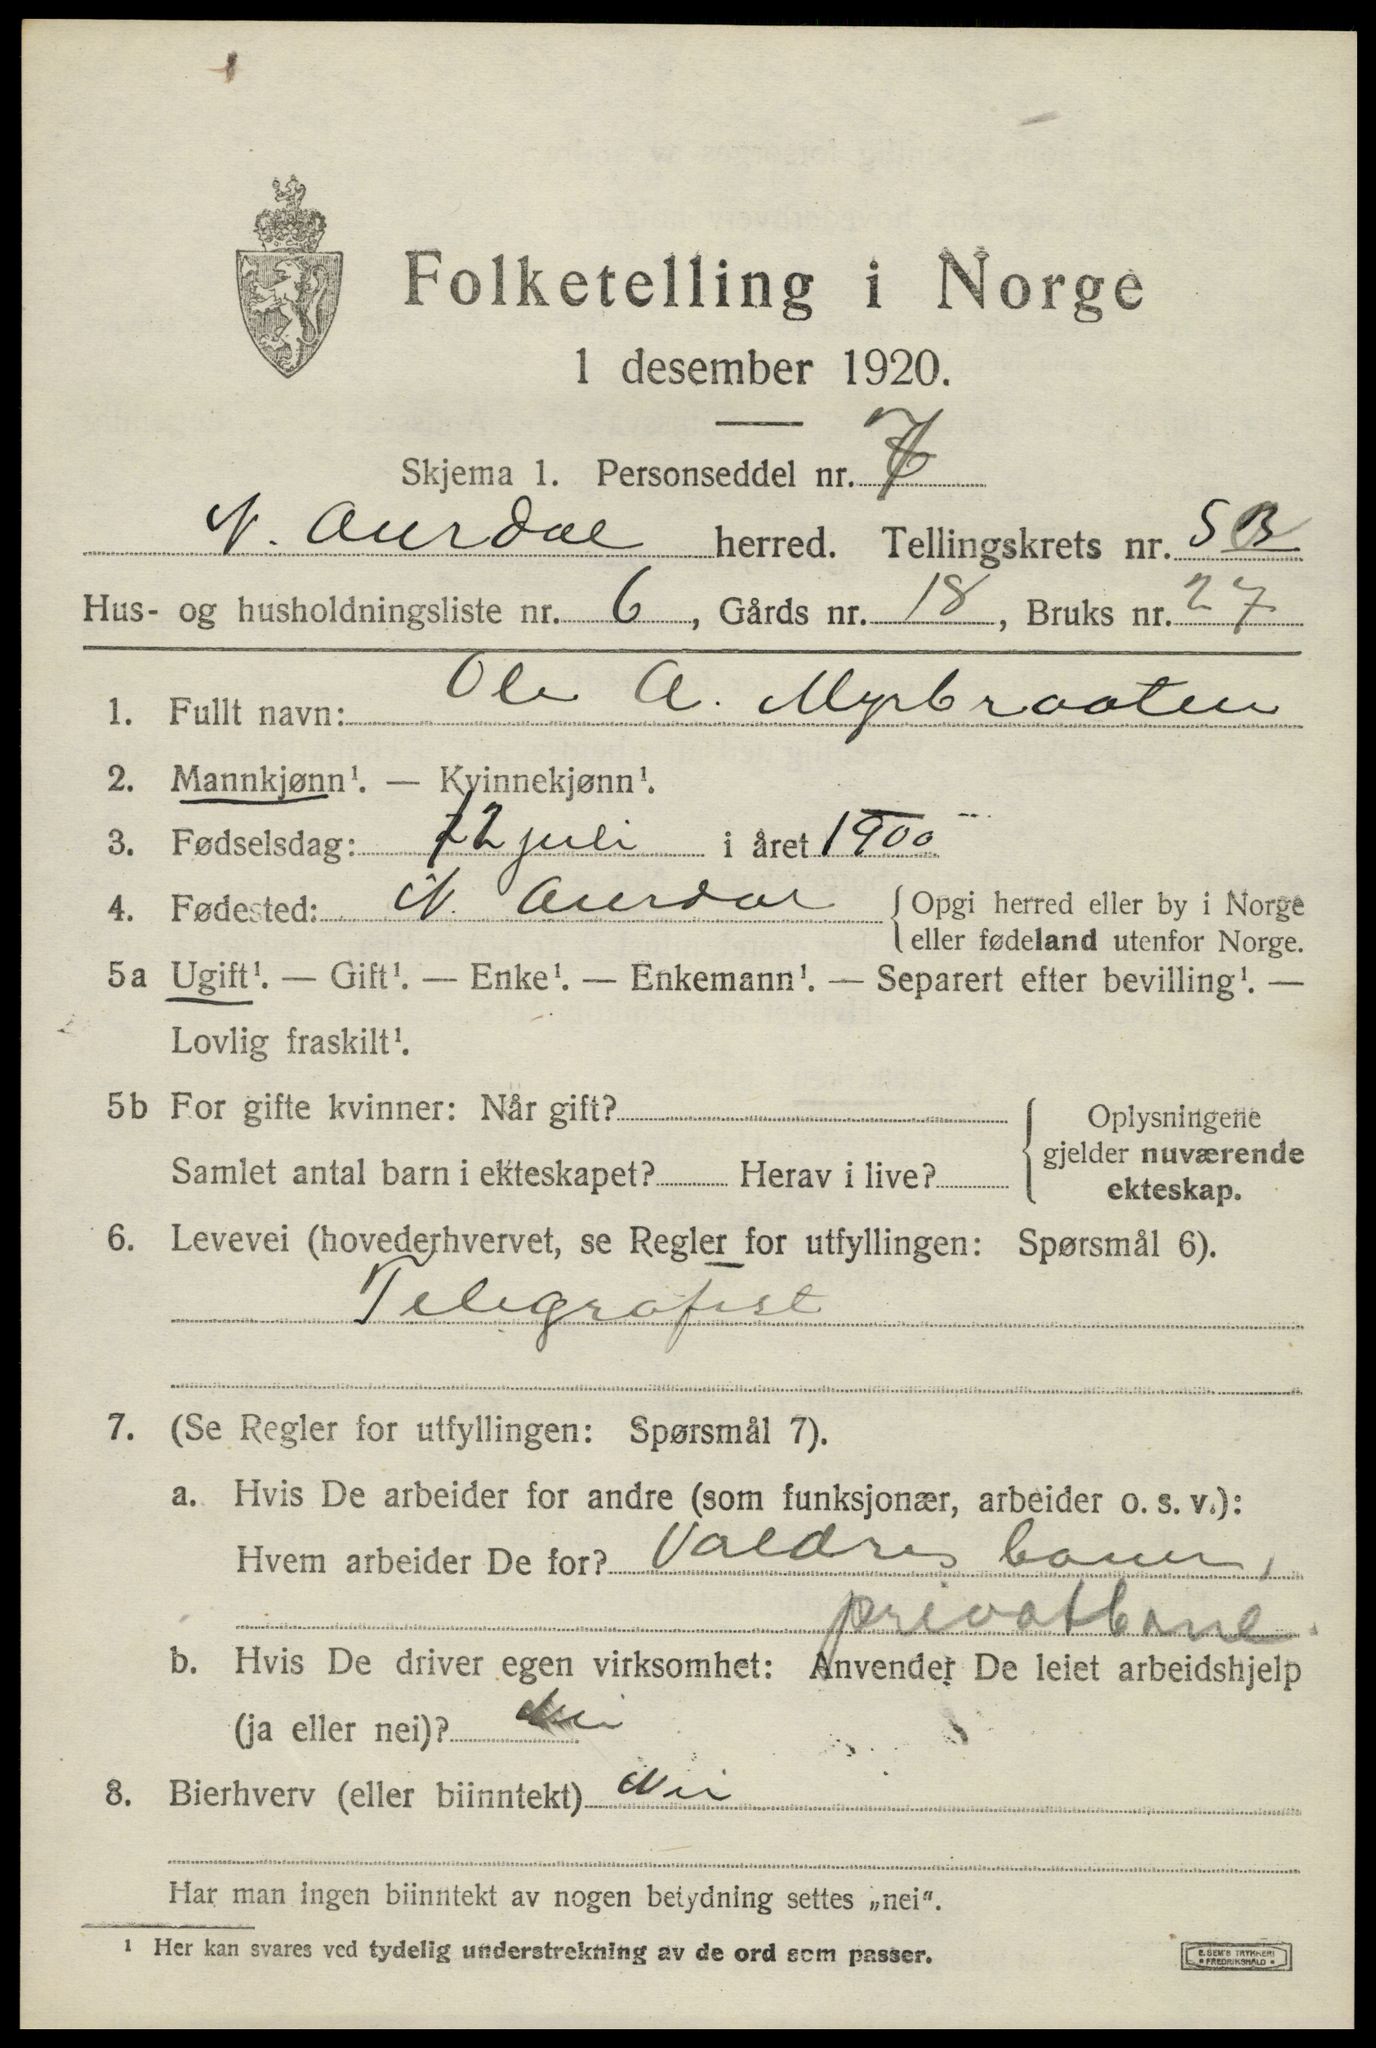 Folketelling i Norge
1 desember 1920.
Skjema 1. Personseddel nr. 7
N. Aurdal herred. Tellingskrets nr. 5 B
Hus- og husholdningsliste nr. 6, Gårds nr. 18, Bruks nr. 27
1. Fullt navn: Ole A. Myrbraaten
2. Mannkjønn¹. — Kvinnekjønn¹.
3. Fødselsdag: 12 juli i året 1900
4. Fødested: N. Aurdal { Opgi herred eller by i Norge
eller fødeland utenfor Norge.
5a Ugift¹. — Gift¹. — Enke¹. — Enkemann¹. — Separert efter bevilling¹. —
Lovlig fraskilt¹.
5b For gifte kvinner: Når gift?
Samlet antal barn i ekteskapet? Herav i live?
{ Oplysningene
gjelder nuværende
ekteskap.
6. Levevei (hovederhvervet, se Regler for utfyllingen: Spørsmål 6).
Telegrafist
7. (Se Regler for utfyllingen: Spørsmål 7).
a. Hvis De arbeider for andre (som funksjonær, arbeider o. s. v.):
Hvem arbeider De for? Valdres banen,
privatbane.
b. Hvis De driver egen virksomhet: Anvender De leiet arbeidshjelp
(ja eller nei)? Nei
8. Bierhverv (eller biinntekt) Nei
Har man ingen biinntekt av nogen betydning settes „nei".
¹ Her kan svares ved tydelig understrekning av de ord som passer.
E. SEM'S TRYKKERI
• FREDRIKSHALD •